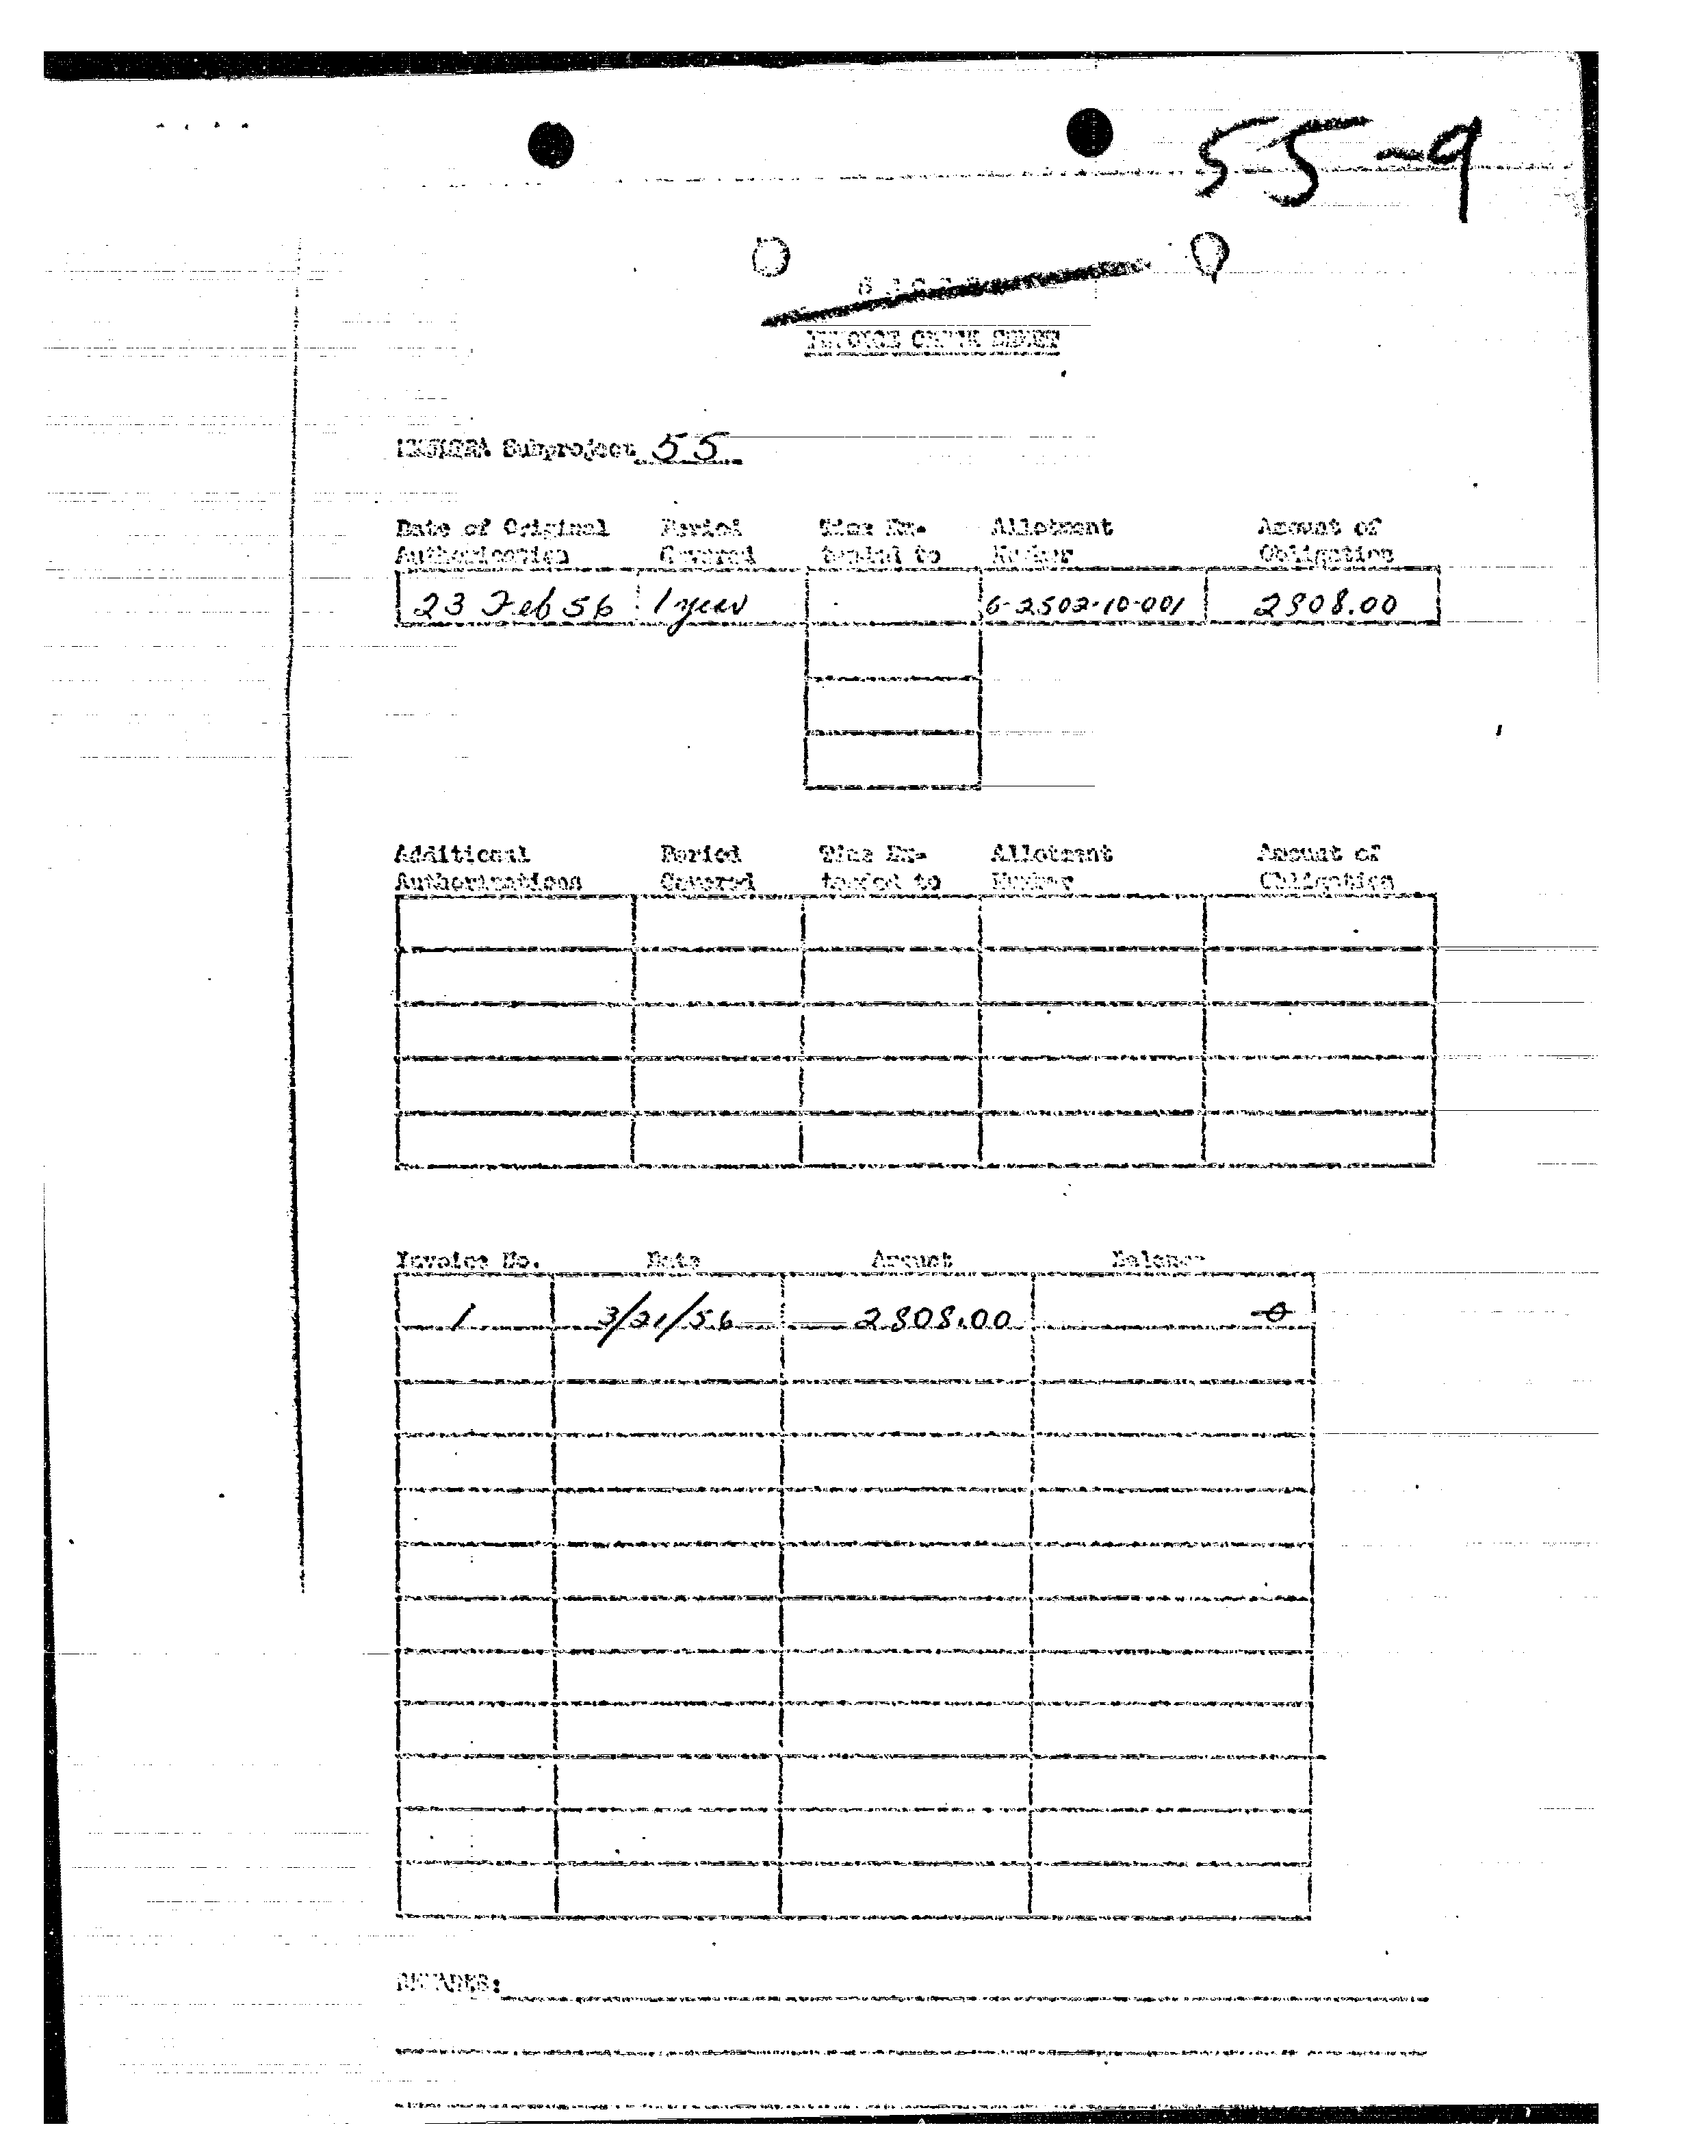 55-9
INVOICE CHECK SHEET
Subproject 55
Date of Original Period Time Ex- Allotment Amount of
Authorization Covered tended to Number Obligation
23 Feb 56 1 year 6-2502-10-001 2808.00
Additional Period Time Ex- Allotment Amount of
Authorizations Covered tended to Number Obligation
Invoice No. Date Amount Balance
1 3/21/56 2808.00 -0-
REMARKS: